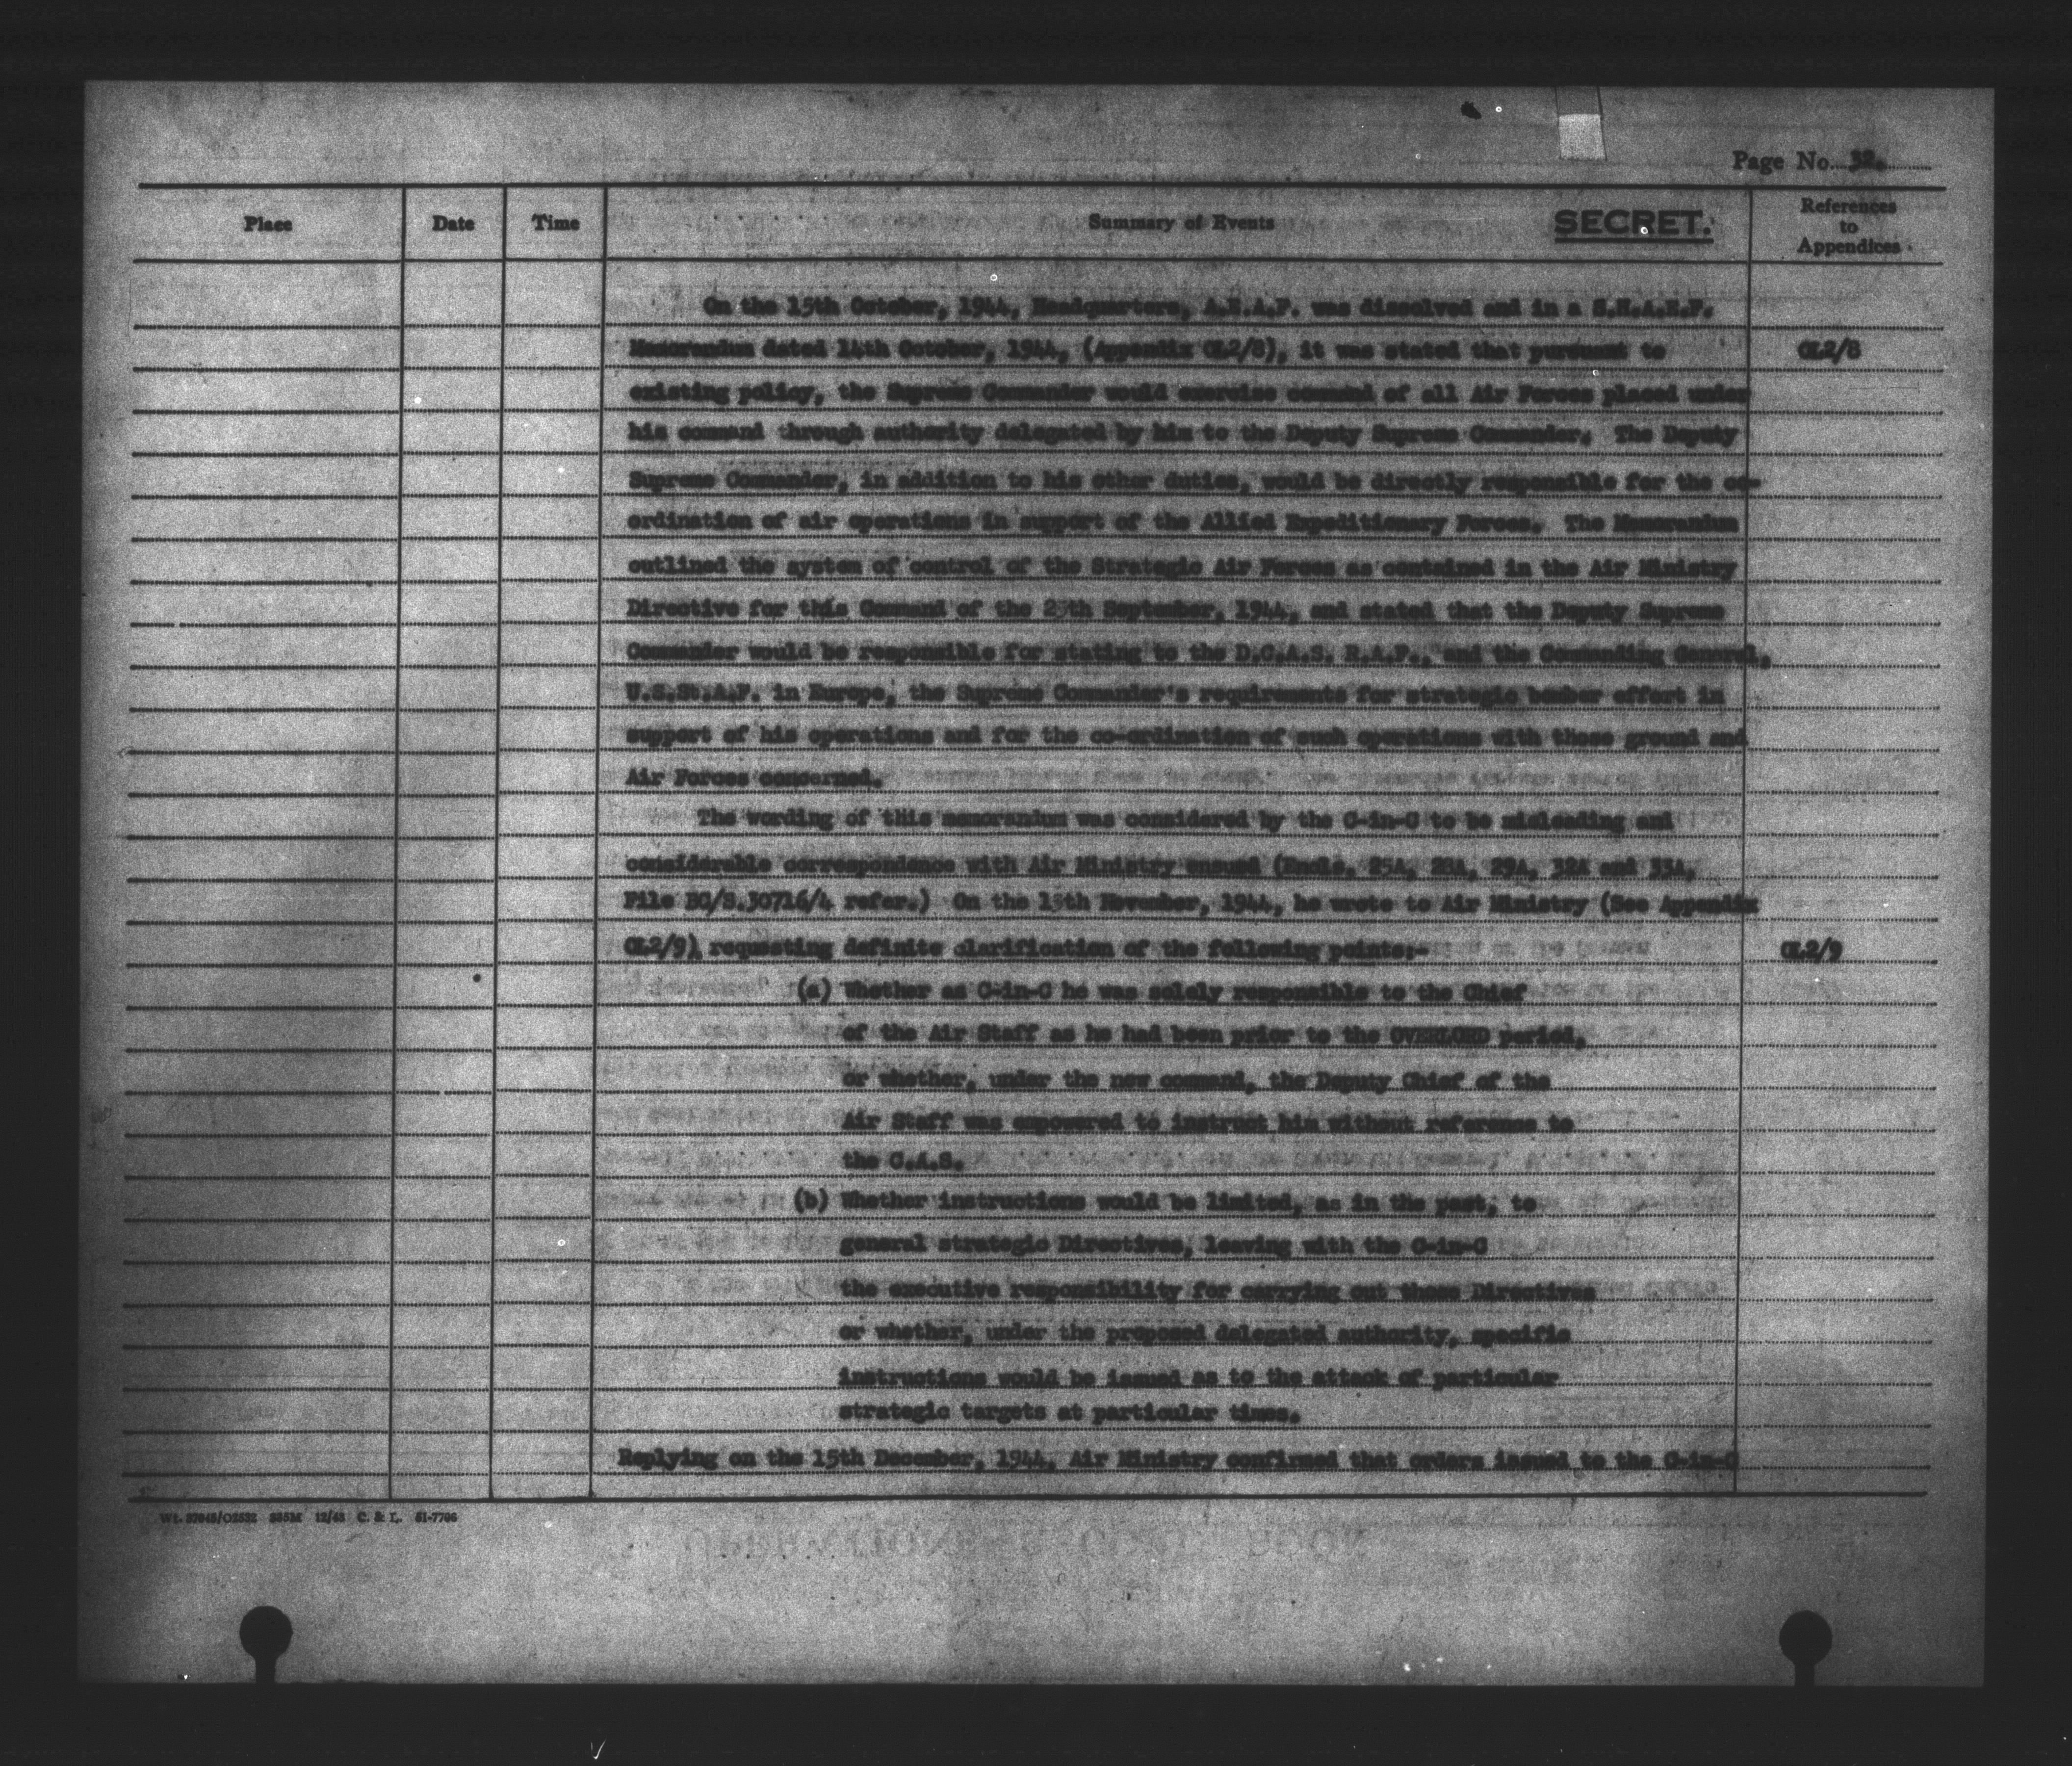 Page No. 32.
Place Date Time Summary of Events SECRET. References to Appendices
On the 15th October, 1944, Headquarters, A.E.A.F. was dissolved and in a S.H.A.E.F.
Memorandum dated 14th October, 1944, (Appendix GL2/8), it was stated that pursuant to GL2/8
existing policy, the Supreme Commander would exercise command of all Air Forces placed under
his command through authority delegated by him to the Deputy Supreme Commander. The Deputy
Supreme Commander, in addition to his other duties, would be directly responsible for the co-
ordination of air operations in support of the Allied Expeditionary Forces. The Memorandum
outlined the system of control of the Strategic Air Forces as contained in the Air Ministry
Directive for this Command of the 25th September, 1944, and stated that the Deputy Supreme
Commander would be responsible for stating to the D.C.A.S. R.A.F., and the Commanding General,
U.S.St.A.F. in Europe, the Supreme Commander's requirements for strategic bomber effort in
support of his operations and for the co-ordination of such operations with those ground and
Air Forces concerned.
The wording of this memorandum was considered by the C-in-C to be misleading and
considerable correspondence with Air Ministry ensued (Encls. 25A, 28A, 29A, 32A and 33A,
File BC/S.30716/4 refer.) On the 15th November, 1944, he wrote to Air Ministry (See Appendix
GL2/9) requesting definite clarification of the following points:- GL2/9
(a) Whether as C-in-C he was solely responsible to the Chief
of the Air Staff as he had been prior to the OVERLORD period,
or whether, under the new command, the Deputy Chief of the
Air Staff was empowered to instruct him without reference to
the C.A.S.
(b) Whether instructions would be limited, as in the past, to
general strategic Directives, leaving with the C-in-C
the executive responsibility for carrying out those Directives
or whether, under the proposed delegated authority, specific
instructions would be issued as to the attack of particular
strategic targets at particular times.
Replying on the 15th December, 1944, Air Ministry confirmed that orders issued to the C-in-C
12/43 C. & L. 51-7706